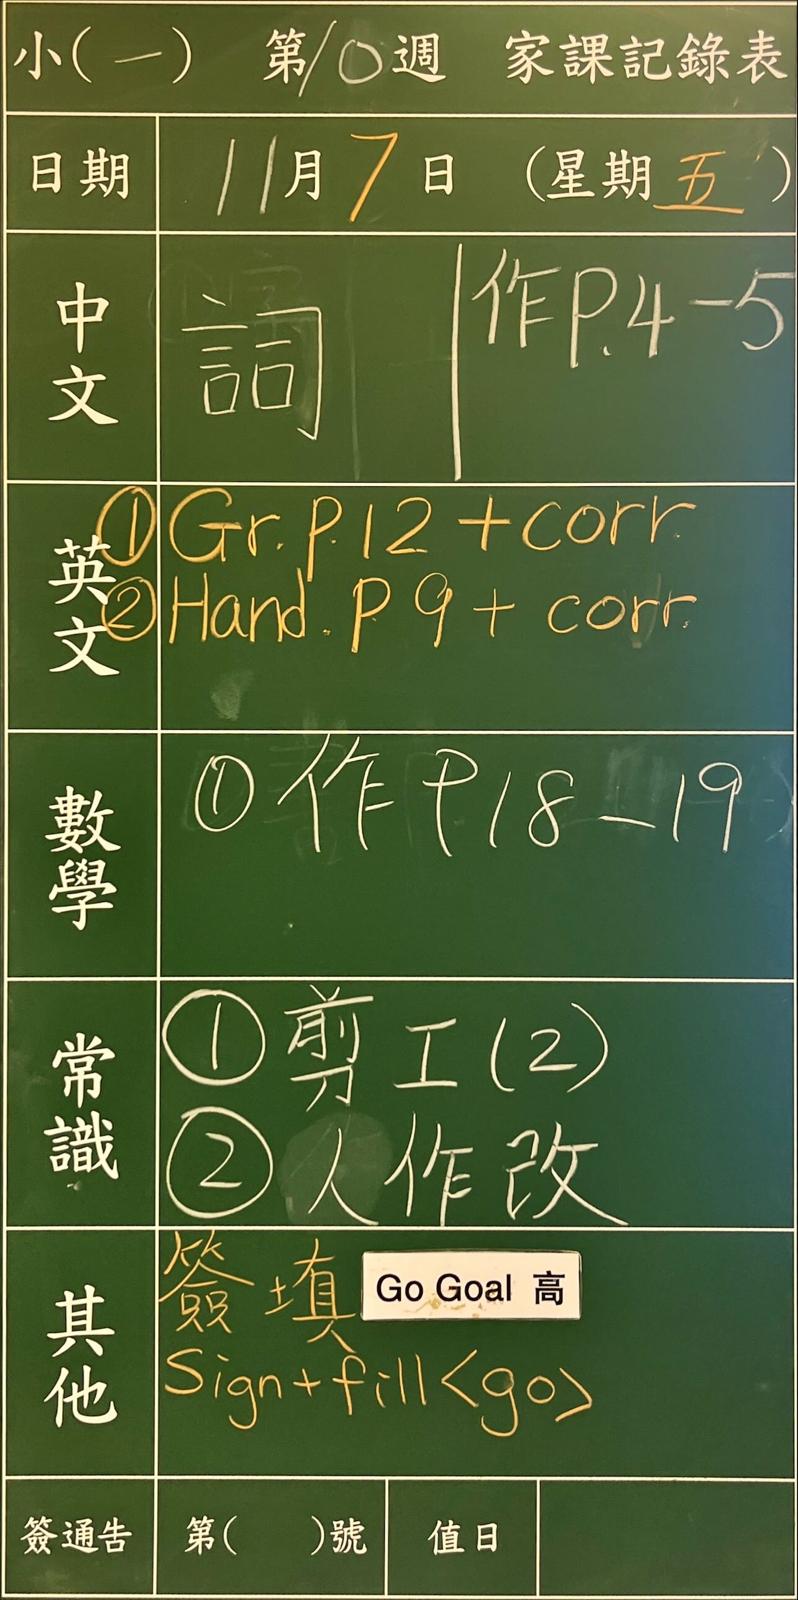 小(一) 第10週 家課記錄表
日期 11月7日 (星期五)
中文 詞 作P.4-5
英文 ①Gr. P.12 + corr.
②Hand. P 9 + corr.
數學 ①作P18-19
常識 ①剪工(2)
②人作改
其他 簽填 Go Goal 高
Sign + fill <go>
簽通告 第( )號 值日